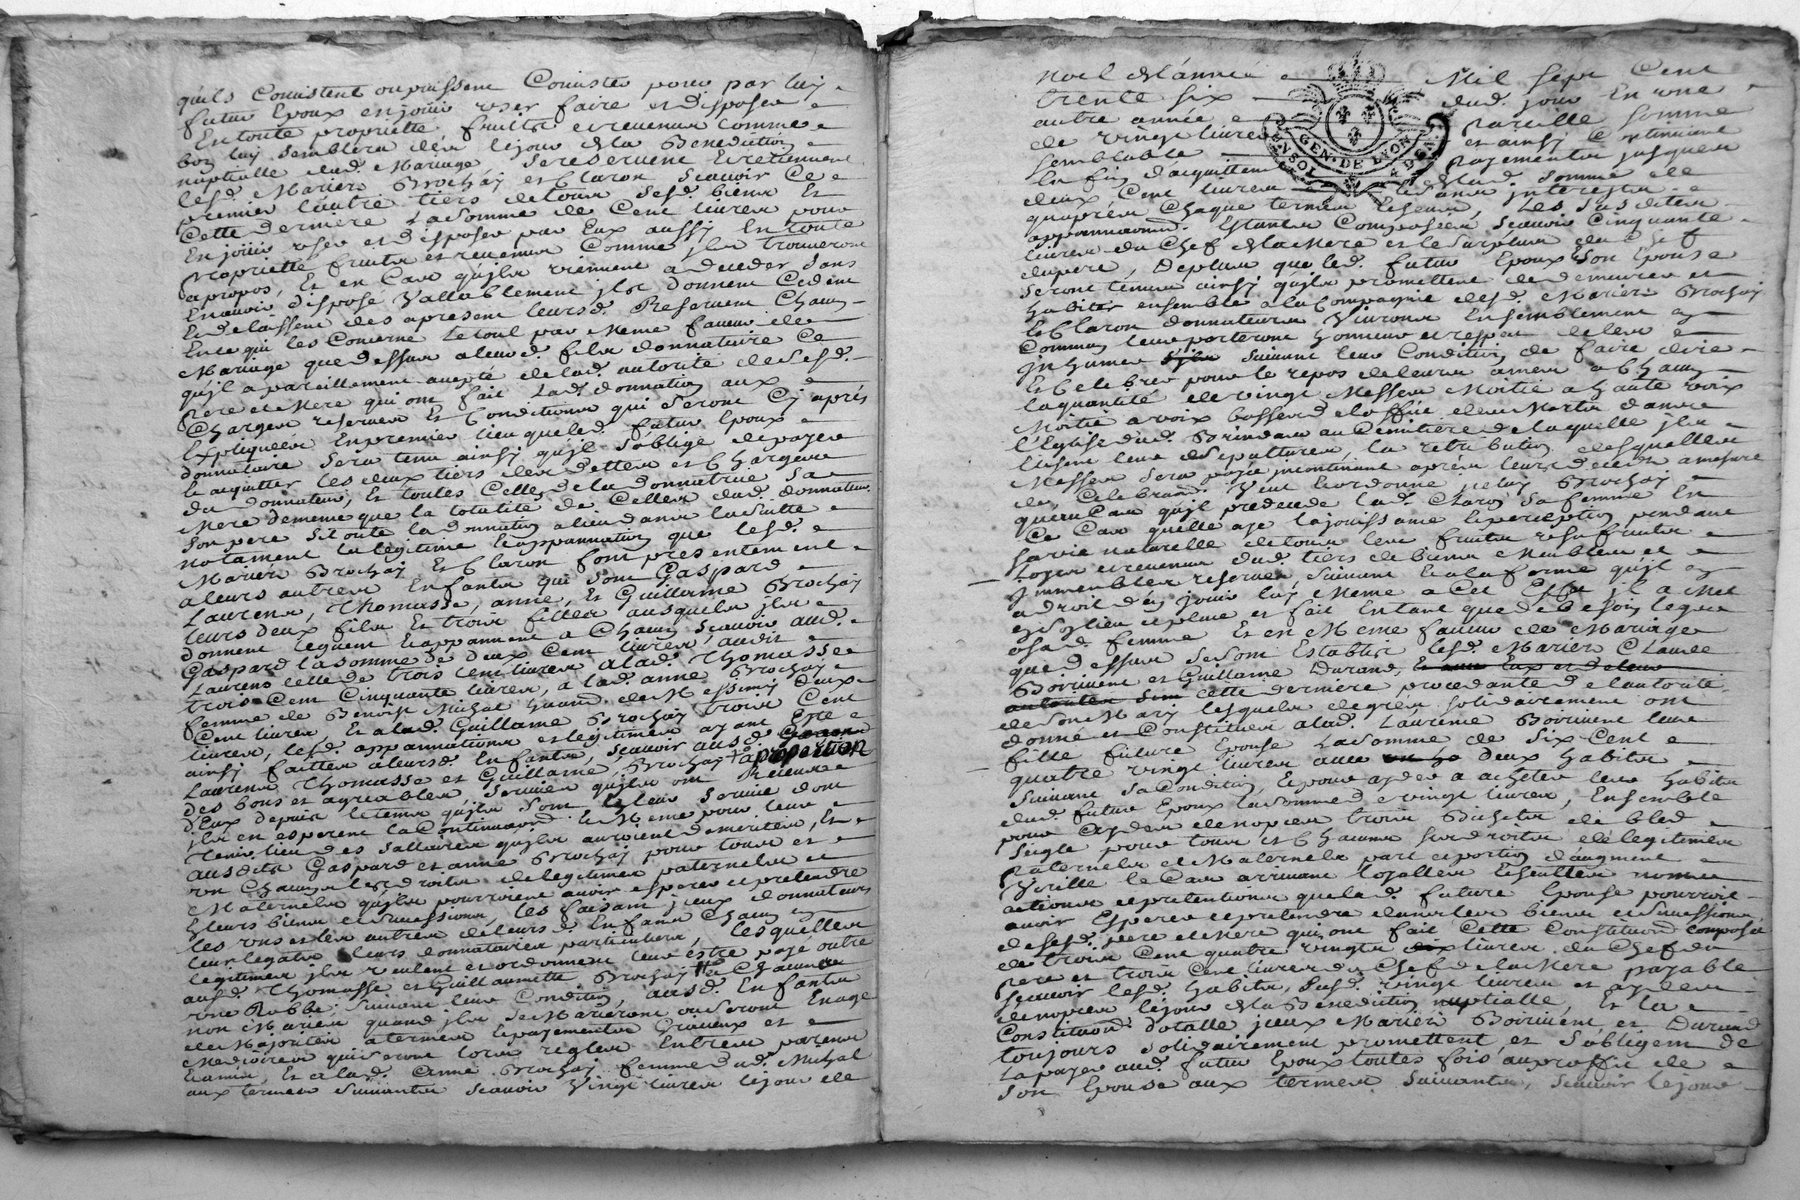 quils Consistent ou puissent Consister pour par luy
futur Epoux en jouir user faire et disposer
En toute propriette fruits et revenus comme
bon luy semblera des le jour de la Benediction
nuptialle dud. Mariage, se reservent Et retiennent
lesd. Mariés Brochay et Claron scauoir Ce
premier l'autre tiers de tous sesd. biens Et
Cette derniere La somme de Cent livres pour
En jouir user et disposer par Eux aussy En toute
propriette fruits et revenus Comme ils trouveront
a propos, Et en Cas qu'ils viennent a deceder sans
En avoir disposé Vallablement ils donnent Cedent
Et delaissent des apresent leursd. Reserves Chacun
En ce qui les Concerne le tout par meme faveur de
Mariage que dessus aleurd. fils donnataire Ce
qu'il a pareillement accepté de lad. autorité de sesd.
pere et Mere qui ont fait Lad. donnation aux
Charges reserves Et Conditions qui seront Cy aprés
Expliquées En premier lieu que led. futur Epoux
donnataire sera tenu ainsy qu'il s'oblige de payer
Et acquitter les deux tiers des dettes et Charges
du donnateur, Et toutes Celles de la donnatrice sa
Mere de meme que la totalité de Celles dud. donnateur
son pere si toute la donnation a lieu dans la suitte
notament la legitime Et appannation que lesd.
Mariés Brochay Et Claron font presentement
a leurs autres Enfants qui sont Gaspard
Laurens, Thomasse, anne, Et Guillaume Brochay
leurs deux fils Et trois filles ausquels ils
donnent leguent Et appannent a Chacun scauoir aud.
Gaspard la somme de deux Cent livres, audit
Laurens celle de trois Cent livres a lad. Thomasse
trois Cent Cinquante livres, a lad. anne Brochay
femme de Benoist Michal Grand de Messimy deux
Cent livres, Et a lad. Guillaume Brochay trois Cent
livres, lesd. appannations et legitimes ayant Este
ainsy faittes a leursd. Enfants, scauoir ausd.
Laurens Thomasse et Guillaume Brochay a proportion
des bons et agreables services qu'ils ont Receus
d'Eux depuis le tems qu'ils sont a leur service dont
ils en esperent la Continuaon. Et Meme pour leur
tenir lieu des sallaires qu'ils auroient demerités, Et
ausdits Gaspard et anne Brochay pour tous et
un Chacuns les droits de legitimes paternels et
Maternels qu'ils pourroient avoir esperer et pretendre
Es leurs biens et successions, les faisant iceux donnateurs
les uns et les autres de leursd. Enfans Chacun
leur legataires leurs donnataires particuliers, lesquelles
legitimes ils veulent et ordonnent leur estre payé outre
ausd. Thomasse et Guillaumette Brochay a Chacune
une Robbe, suivant leur Condition, ausd. Enfants
non Mariés quand ils se Marieront ou seront En age
de Majorité a termes Et payements Gracieux et
Mediocres qui seront lors reglés Entre parens
Et amis, Et a lad. anne Brochay femme dud. Michal
aux termes suivants scauoir Vingt livres le jour de
noel de l'année Mil sept Cent
trente six dud. jour En une
autre année pareille somme
de vingt livres et ainsy Continuant
semblable payements jusques
la fin d'acquittem. de lad. somme de
deux Cent livres sans interests
qu'aprés Chaque terme Echeus, Les susdites
appannaons. Estants Composées scauoir Cinquante
livres du Chef de la Mere et le surplus du Chef
du pere, De plus que led. futur Epoux Son Epouse
seront tenus ainsy qu'ils promettent de demeurer et
habiter ensemble a la Compagnie desd. Mariés Brochay
et Claron donnateurs Vivront Ensemblement en
Commun leur porteront honneur et respect de les
inhumer suivant leur Condition de faire dire
Et Celebrer pour le repos de leurs ames a Chacun
la quantité de vingt Messes Moitié a haute voix
Moitié a voix basse de l'office des Morts dans
l'Eglise dud. Brindas au Cemitiere de laquelle ils
Elisent leur Sepulture, la retribution desquelles
Messes sera payé incontinant aprés leurs decés a mesure
de Celebraon. Veut Et ordonne led. Brochay
qu'en Cas qu'il predecede lad. Claron sa femme En
Ce Cas quelle aye la jouissance Et perception pendant
sa vie naturelle de tous les fruits usufruits
Loyer et revenus dud. tiers de biens Meubles et
immeubles reservés, suivant Et a la forme qu'il
a droit d'en jouir luy Meme a Cet Effet il a Met
en son lieu et place et fait Entant que de besoin legue
a sad. femme Et en Meme faveur de Mariage
que dessus se sont Establis lesd. Mariés Claude
Boiriuent et Guillaume Durand,
cette derniere procedante de l'autorité
de son Mary lesquels de gré solidairement ont
donné et Constitué a lad. Laurence Boiriuent leur
fille future Epouse La somme de Six Cent
quatre vingt livres avec deux habits
suivant sa Condition, Et pour ayder a acheter les habits
dud. futur Epoux la somme de vingt livres, Ensemble
pour Cy de nopces trois Bichets de bled
seigle pour tous et Chacuns ses droits de legitimes
paternels et Maternels part et portion d'augment
Virille le Cas arrivant loyalles Echuttes noms
actions et pretentions que lad. future Epouse pourroit
avoir Esperer et pretendre dans les biens et successions
de sesd. pere et Mere qui ont fait Cette Constitution composée
de trois Cent quatre vingts livres du Chef du
pere et trois Cent livres du Chef de la Mere payable
scauoir lesd. habits, lesd. vingt livres et
de nopces le jour de la Benediction nuptialle, Et la
Constituaon. dotalle iceux Mariés Boiriuent, et Durand
toujours solidairement promettent et s'obligent de
la payer aud. futur Epoux toutes fois au proffit de
son Epouse aux termes suivants, scauoir le jour
GEN. DE LYON